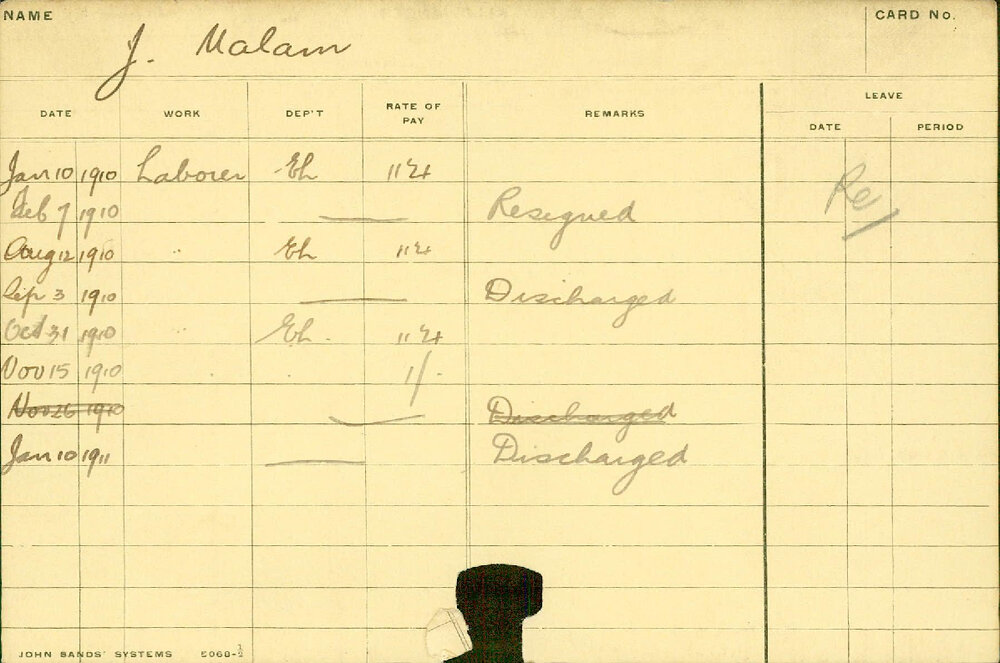 NAME
CARD No.
J. Malam
LEAVE
DATE WORK DEP'T RATE OF PAY REMARKS DATE PERIOD
Jan 10 1910 Laborer Eh
Feb 7 1910 — Resigned Re/
Aug 12 1910 " Eh
Sep 3 1910 — Discharged
Oct 31 1910 " Eh.
Nov 15 1910 1/-
Nov 26 1910 — Discharged
Jan 10 1911 — Discharged
JOHN SANDS' SYSTEMS 5068-½